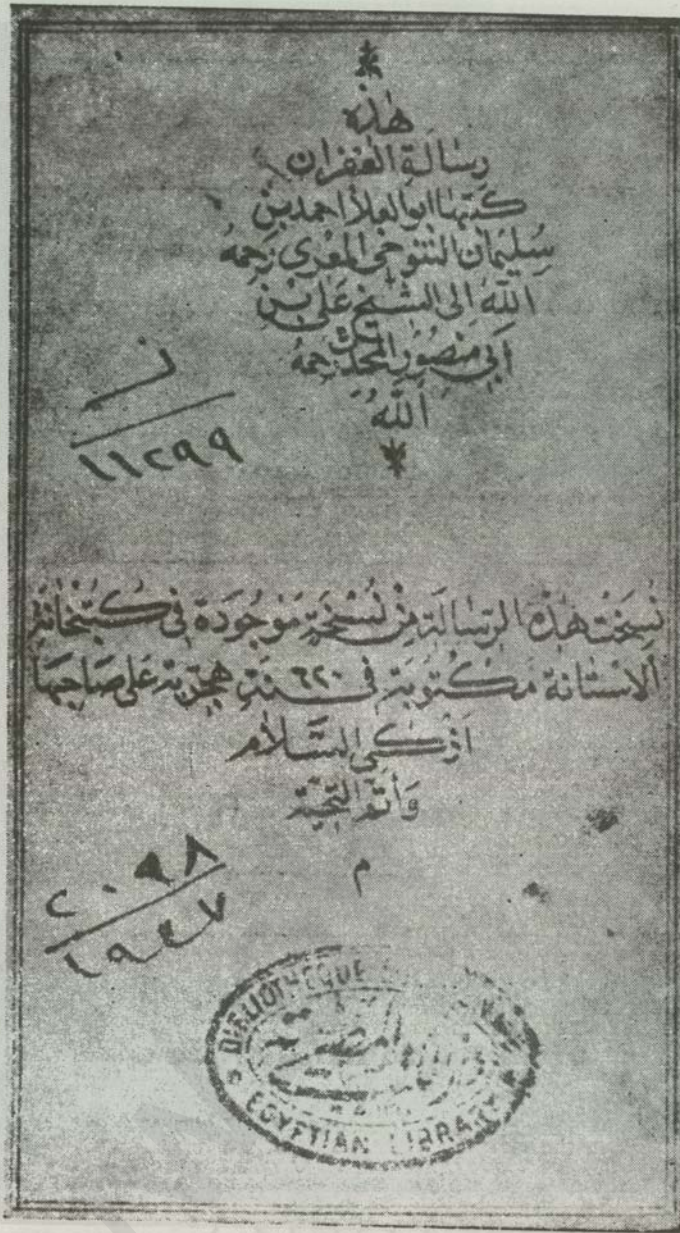 هذه
رسالة الغفران
كتبها ابو العلا احمد بن
سليمان التنوخي المعري رحمه
الله الى الشيخ علي بن
أبي منصور رحمه
الله
ز
١١٢٩٩
نسخت هذه الرسالة من نسخة موجودة في كتبخانة
الاستانة مكتوبة في سنة ٦٢٠ هجرية على صاحبها
ازكى السلام
وأتم التحية
م
٢٠٩٨
١٩٤٧
BIBLIOTHEQUE
المصرية
EGYPTIAN LIBRARY